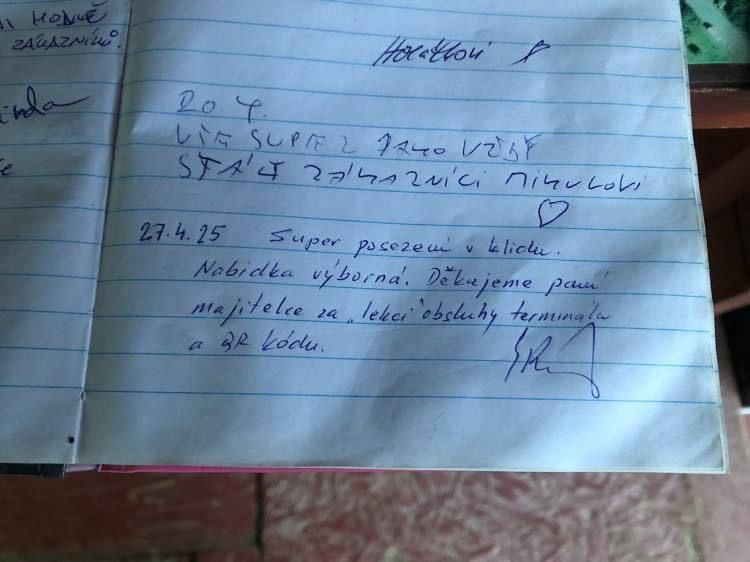 HODNĚ
ZÁKAZNÍKŮ.
20 4.
VŠE SUPER JAKO VŽDY
STÁLÍ ZÁKAZNÍCI MIKULOVI
♡
27.4.25 Super posezení v klidu.
Nabídka výborná. Děkujeme paní
majitelce za „lekci" obsluhy terminála
a QR kódu.